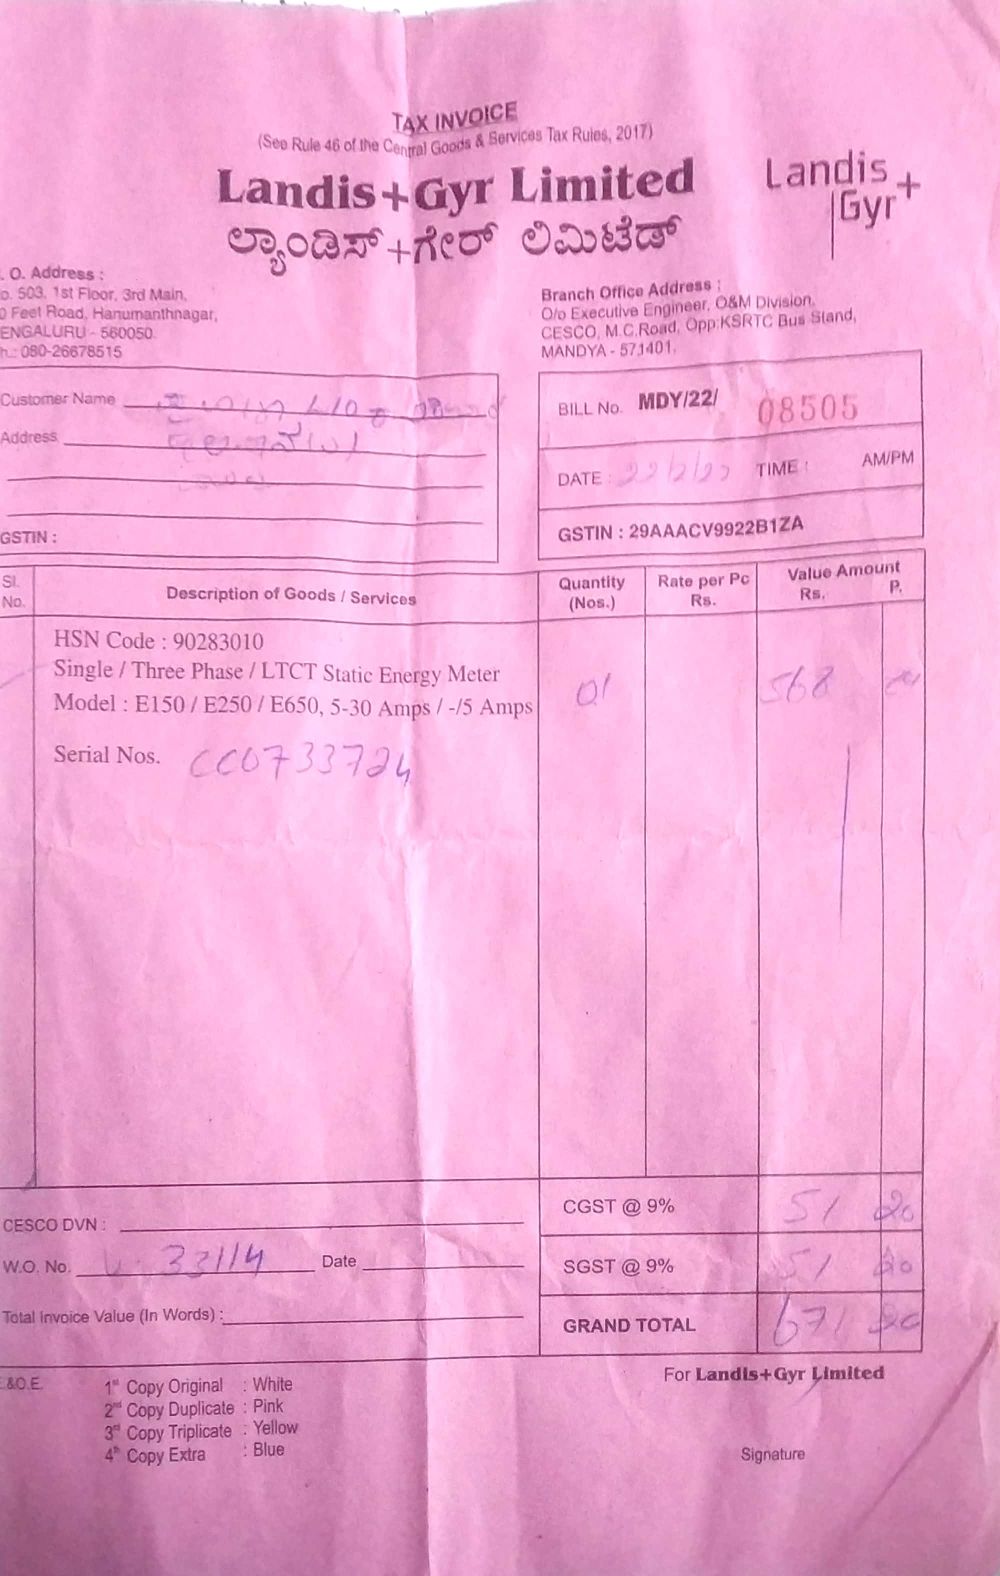 TAX INVOICE
(See Rule 46 of the Central Goods & Services Tax Rules, 2017)
Landis+Gyr Limited
Landis+
Gyr
ಲ್ಯಾಂಡಿಸ್+ಗೇರ್ ಲಿಮಿಟೆಡ್
. O. Address :
o. 503, 1st Floor, 3rd Main,
0 Feet Road, Hanumanthnagar,
ENGALURU - 560050.
h.: 080-26678515
Branch Office Address :
O/o Executive Engineer, O&M Division,
CESCO, M.C.Road, Opp:KSRTC Bus Stand,
MANDYA - 571401.
Customer Name
Address
GSTIN :
BILL No. MDY/22/ 08505
DATE : 22/2/23 TIME : AM/PM
GSTIN : 29AAACV9922B1ZA
Sl. No. Description of Goods / Services Quantity (Nos.) Rate per Pc Rs. Value Amount Rs. P.
HSN Code : 90283010
Single / Three Phase / LTCT Static Energy Meter
Model : E150 / E250 / E650, 5-30 Amps / -/5 Amps 01 568
Serial Nos. CC0733724
CGST @ 9% 51 20
CESCO DVN :
W.O. No. 33114 Date
SGST @ 9% 51 20
Total Invoice Value (In Words) :
GRAND TOTAL 671
&O.E.
1st Copy Original : White
2nd Copy Duplicate : Pink
3rd Copy Triplicate : Yellow
4th Copy Extra : Blue
For Landis+Gyr Limited
Signature